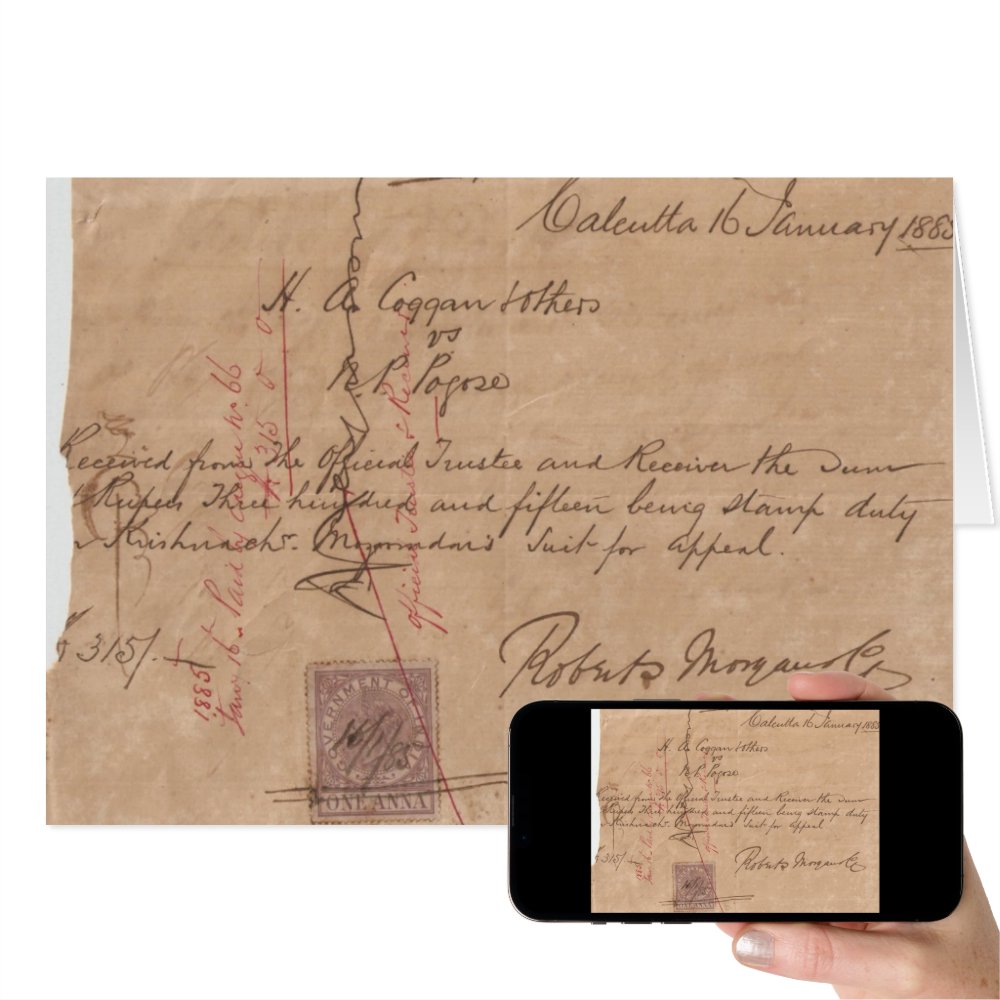 Calcutta 16 January 1885
H. A. Coggan & others
vs
N. P. Pogose
Received from the Official Trustee and Receiver the Sum
Rupees Three hundred and fifteen being stamp duty
Krishna chr. Mozoomdar's Suit for appeal.
315/-
Roberts Morgan & Co
1885
Jany. 16. Paid by Cheque No. 66
315 0 0
Official Trustee & Receiver
GOVERNMENT OF INDIA
16/1/85
ONE ANNA
Calcutta 16 January 1885
H. A. Coggan & others
vs
N. P. Pogose
Received from the Official Trustee and Receiver the Sum
Rupees Three hundred and fifteen being stamp duty
Krishna chr. Mozoomdar's Suit for appeal
315/-
Roberts Morgan & Co
16/1/85
ONE ANNA